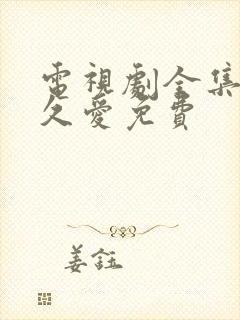 電視劇全集
久愛免費
姜鈺